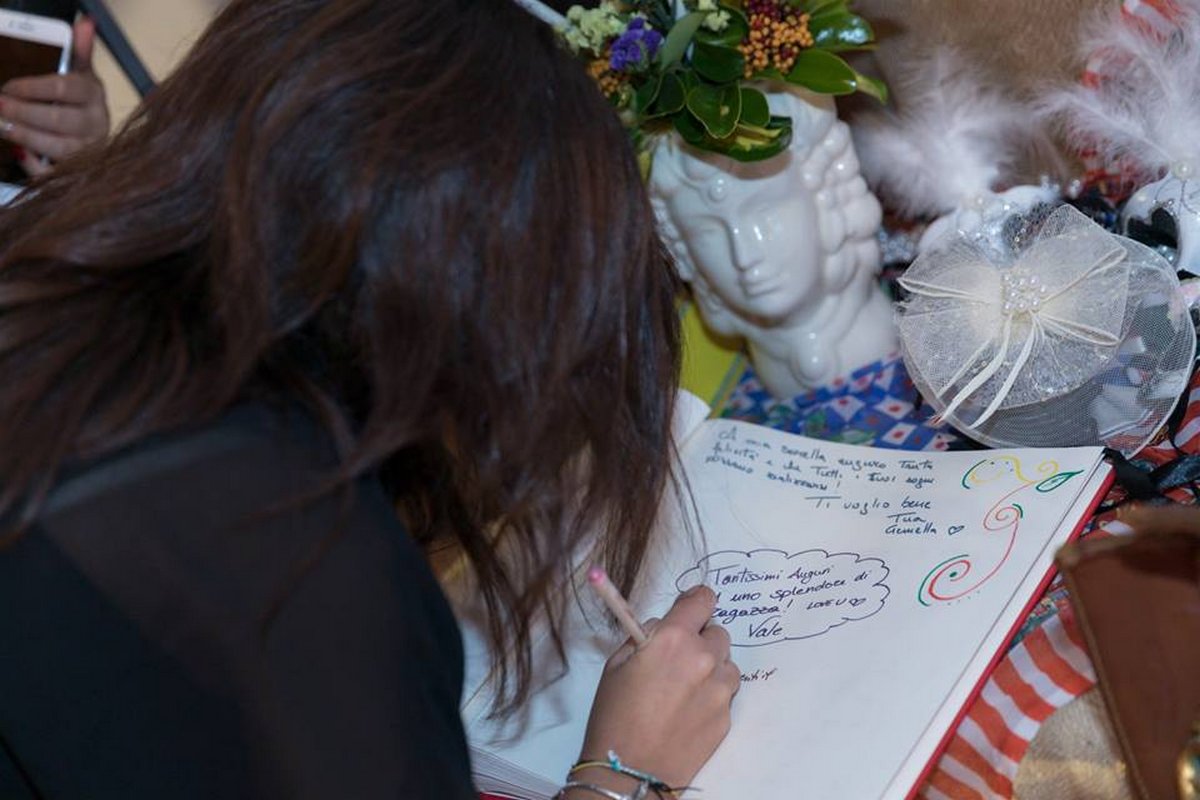 A mia sorella auguro Tanta
felicità e che Tutti i Tuoi sogni
possano realizzarsi!
Ti voglio bene
Tua
Gemella ♡
Tantissimi Auguri
uno splendore di
ragazza! LOVE U ♡
Vale